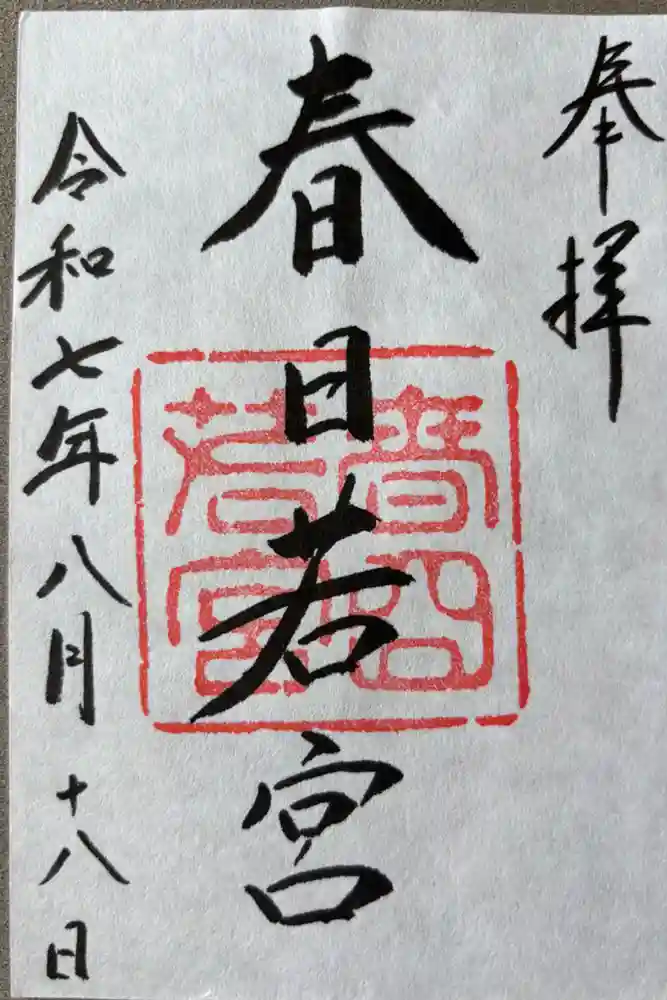 奉拝
春日若宮
春日若宮
令和七年八月十八日